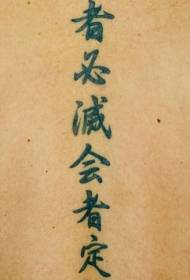 者必滅会者定